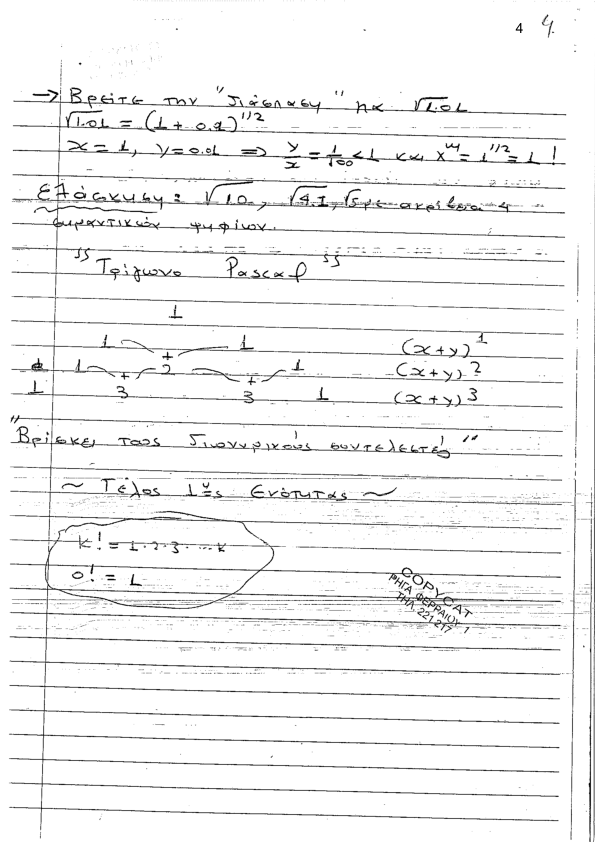 4 4.
→ Βρείτε την "διάσπαση" για √1.01
√1.01 = (1 + 0.1)^1/2
x = 1, y = 0.01 ⇒ y/x = 1/100 < 1 και x^m = 1^1/2 = 1 !
Εξάσκηση: √1.0, √4.1, √5 με ακρίβεια 4
σημαντικών ψηφίων.
"Τρίγωνο Pascal"
1
1 + 1 (x+y)^1
1 + 2 + 1 (x+y)^2
1 3 3 1 (x+y)^3
"Βρίσκει τους διωνυμικούς συντελεστές"
~ Τέλος 1ης Ενότητας ~
k! = 1·2·3·...·k
0! = 1
COPYCAT
ΡΗΓΑ ΦΕΡΡΑΙΟΥ 1
ΤΗΛ. 221.217